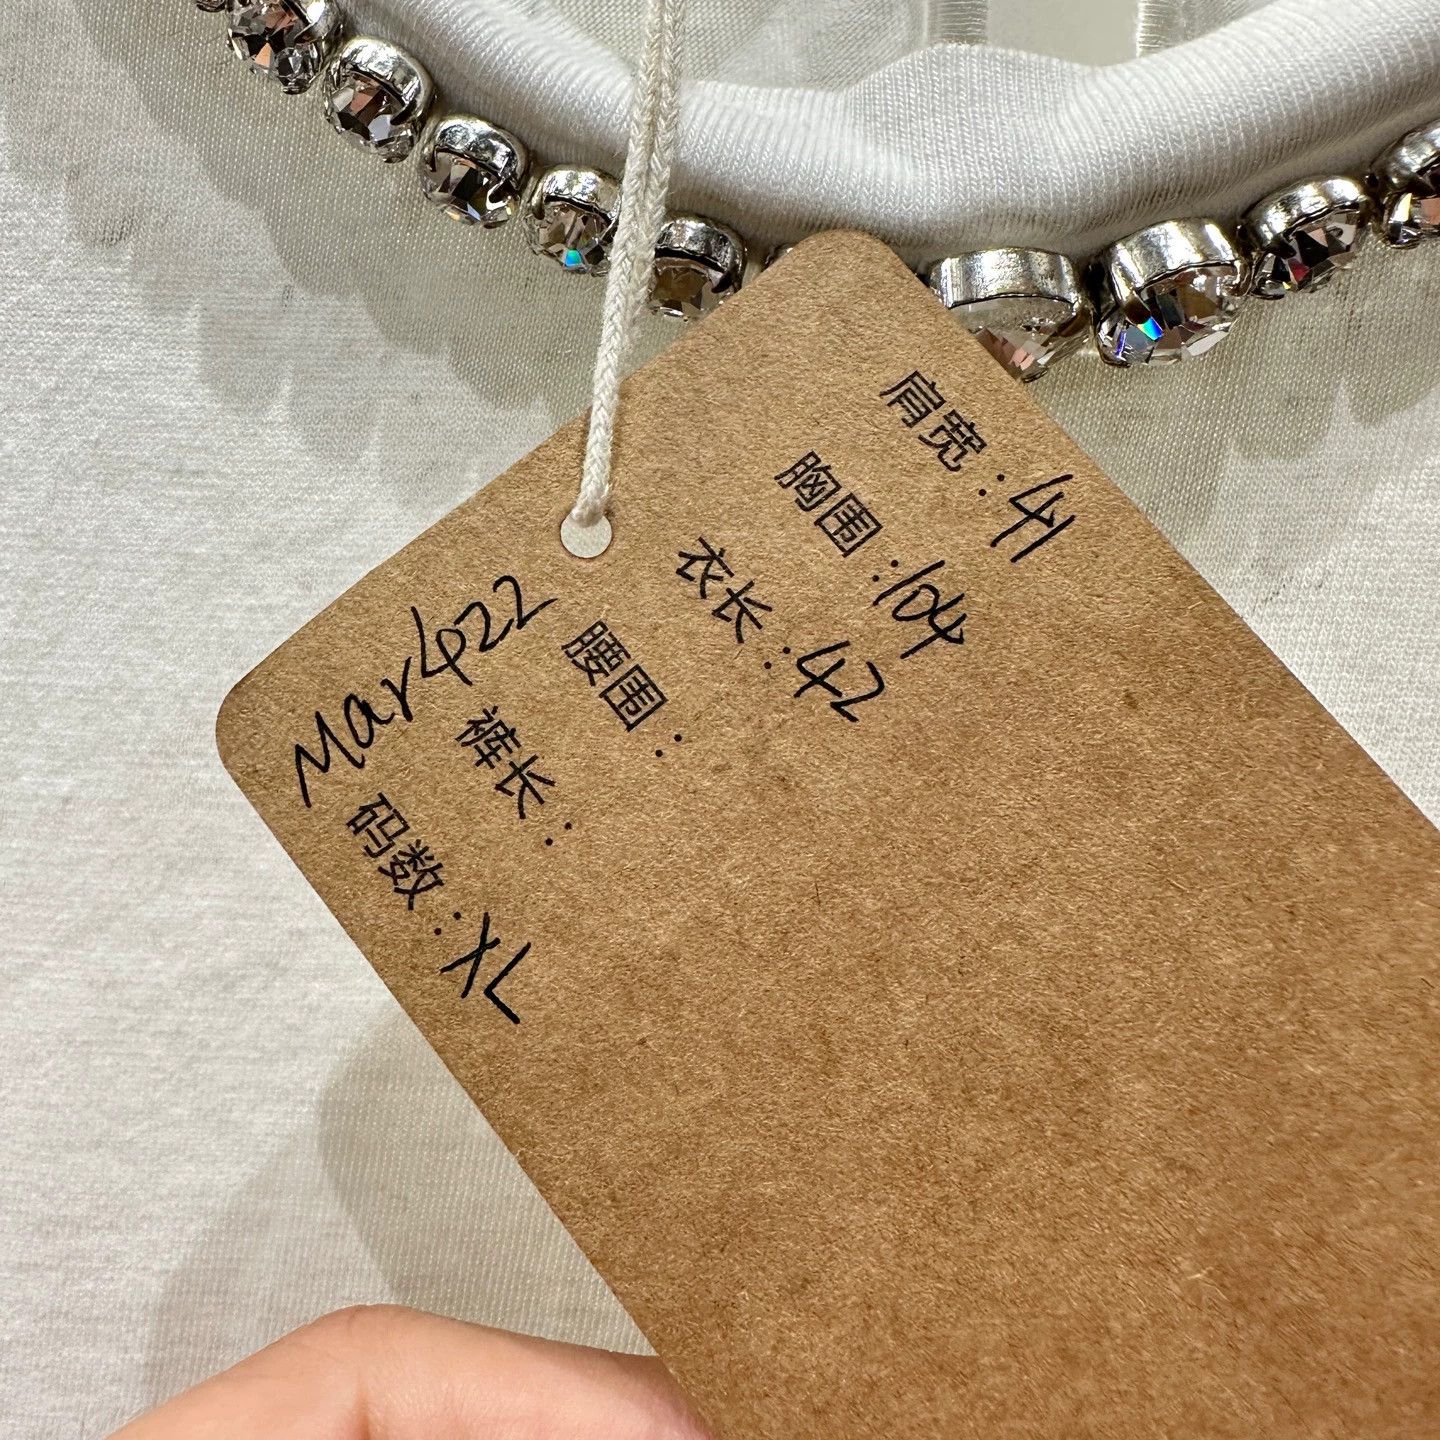 肩宽：41
胸围：104
衣长：42
腰围：
裤长：
码数：XL
Mar422